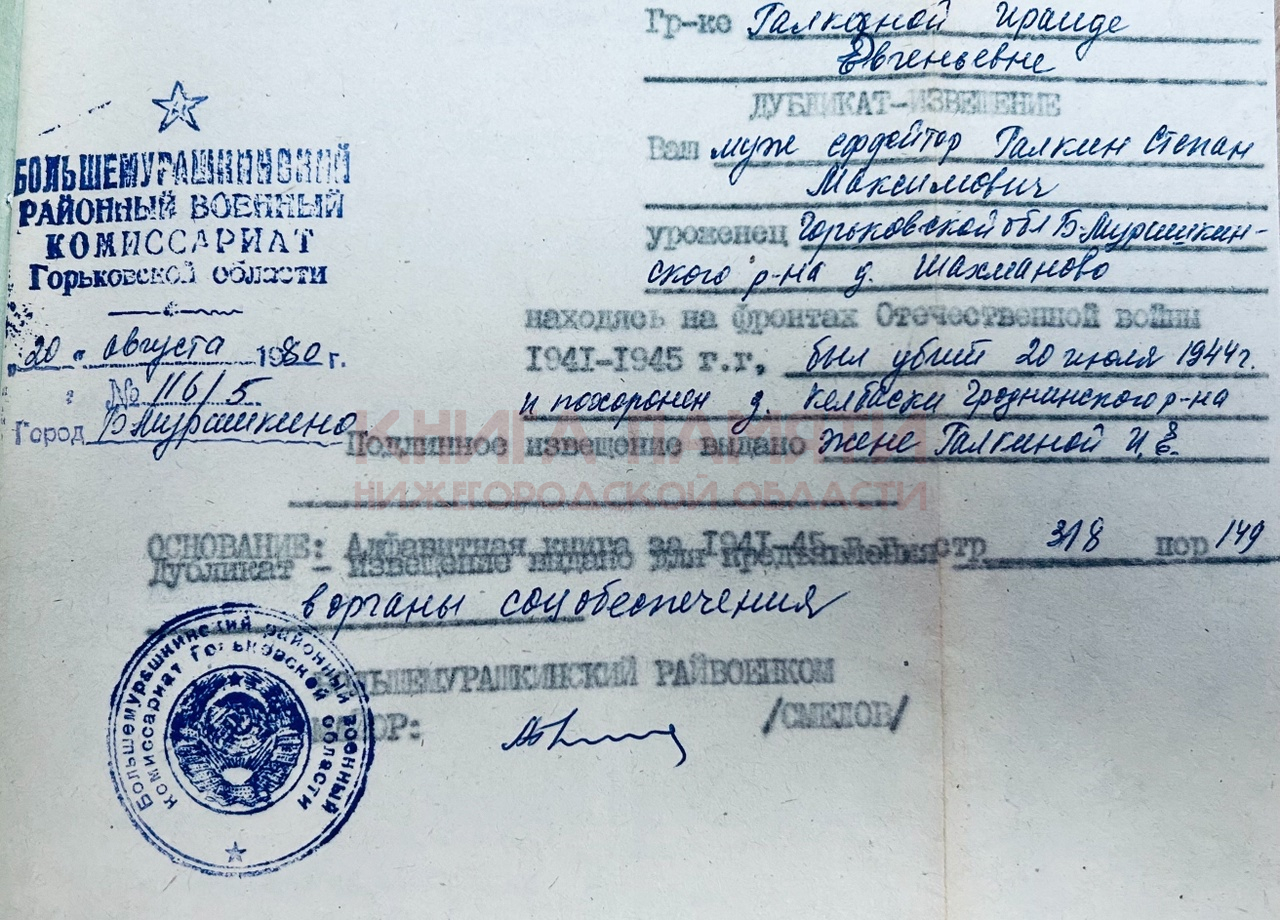 Гр-ке Галкиной Ираиде
Евгеньевне
ДУБЛИКАТ-ИЗВЕЩЕНИЕ
Ваш муж ефрейтор Галкин Степан
Максимович
уроженец Горьковской обл Б-Мурашкин-
ского р-на д. Шахманово
находясь на фронтах Отечественной войны
1941-1945 г.г, был убит 20 июля 1944г.
и похоронен д. Келбаски Гроднинского р-на
Подлинное извещение выдано жене Галкиной И.Е.
ОСНОВАНИЕ: Алфавитная книга за 1941-45 стр 318 пор 149
Дубликат - извещение выдано для предъявления
в органы соцобеспечения
БОЛЬШЕМУРАШКИНСКИЙ РАЙВОЕНКОМ
МАЙОР: /СМЕЛОВ/
БОЛЬШЕМУРАШКИНСКИЙ
РАЙОННЫЙ ВОЕННЫЙ
КОМИССАРИАТ
Горьковской области
"20" августа 1980 г.
№ 116/5
Город Б.Мурашкино
КНИГА ПАМЯТИ
НИЖЕГОРОДСКОЙ ОБЛАСТИ
Большемурашкинский районный военный
комиссариат Горьковской области